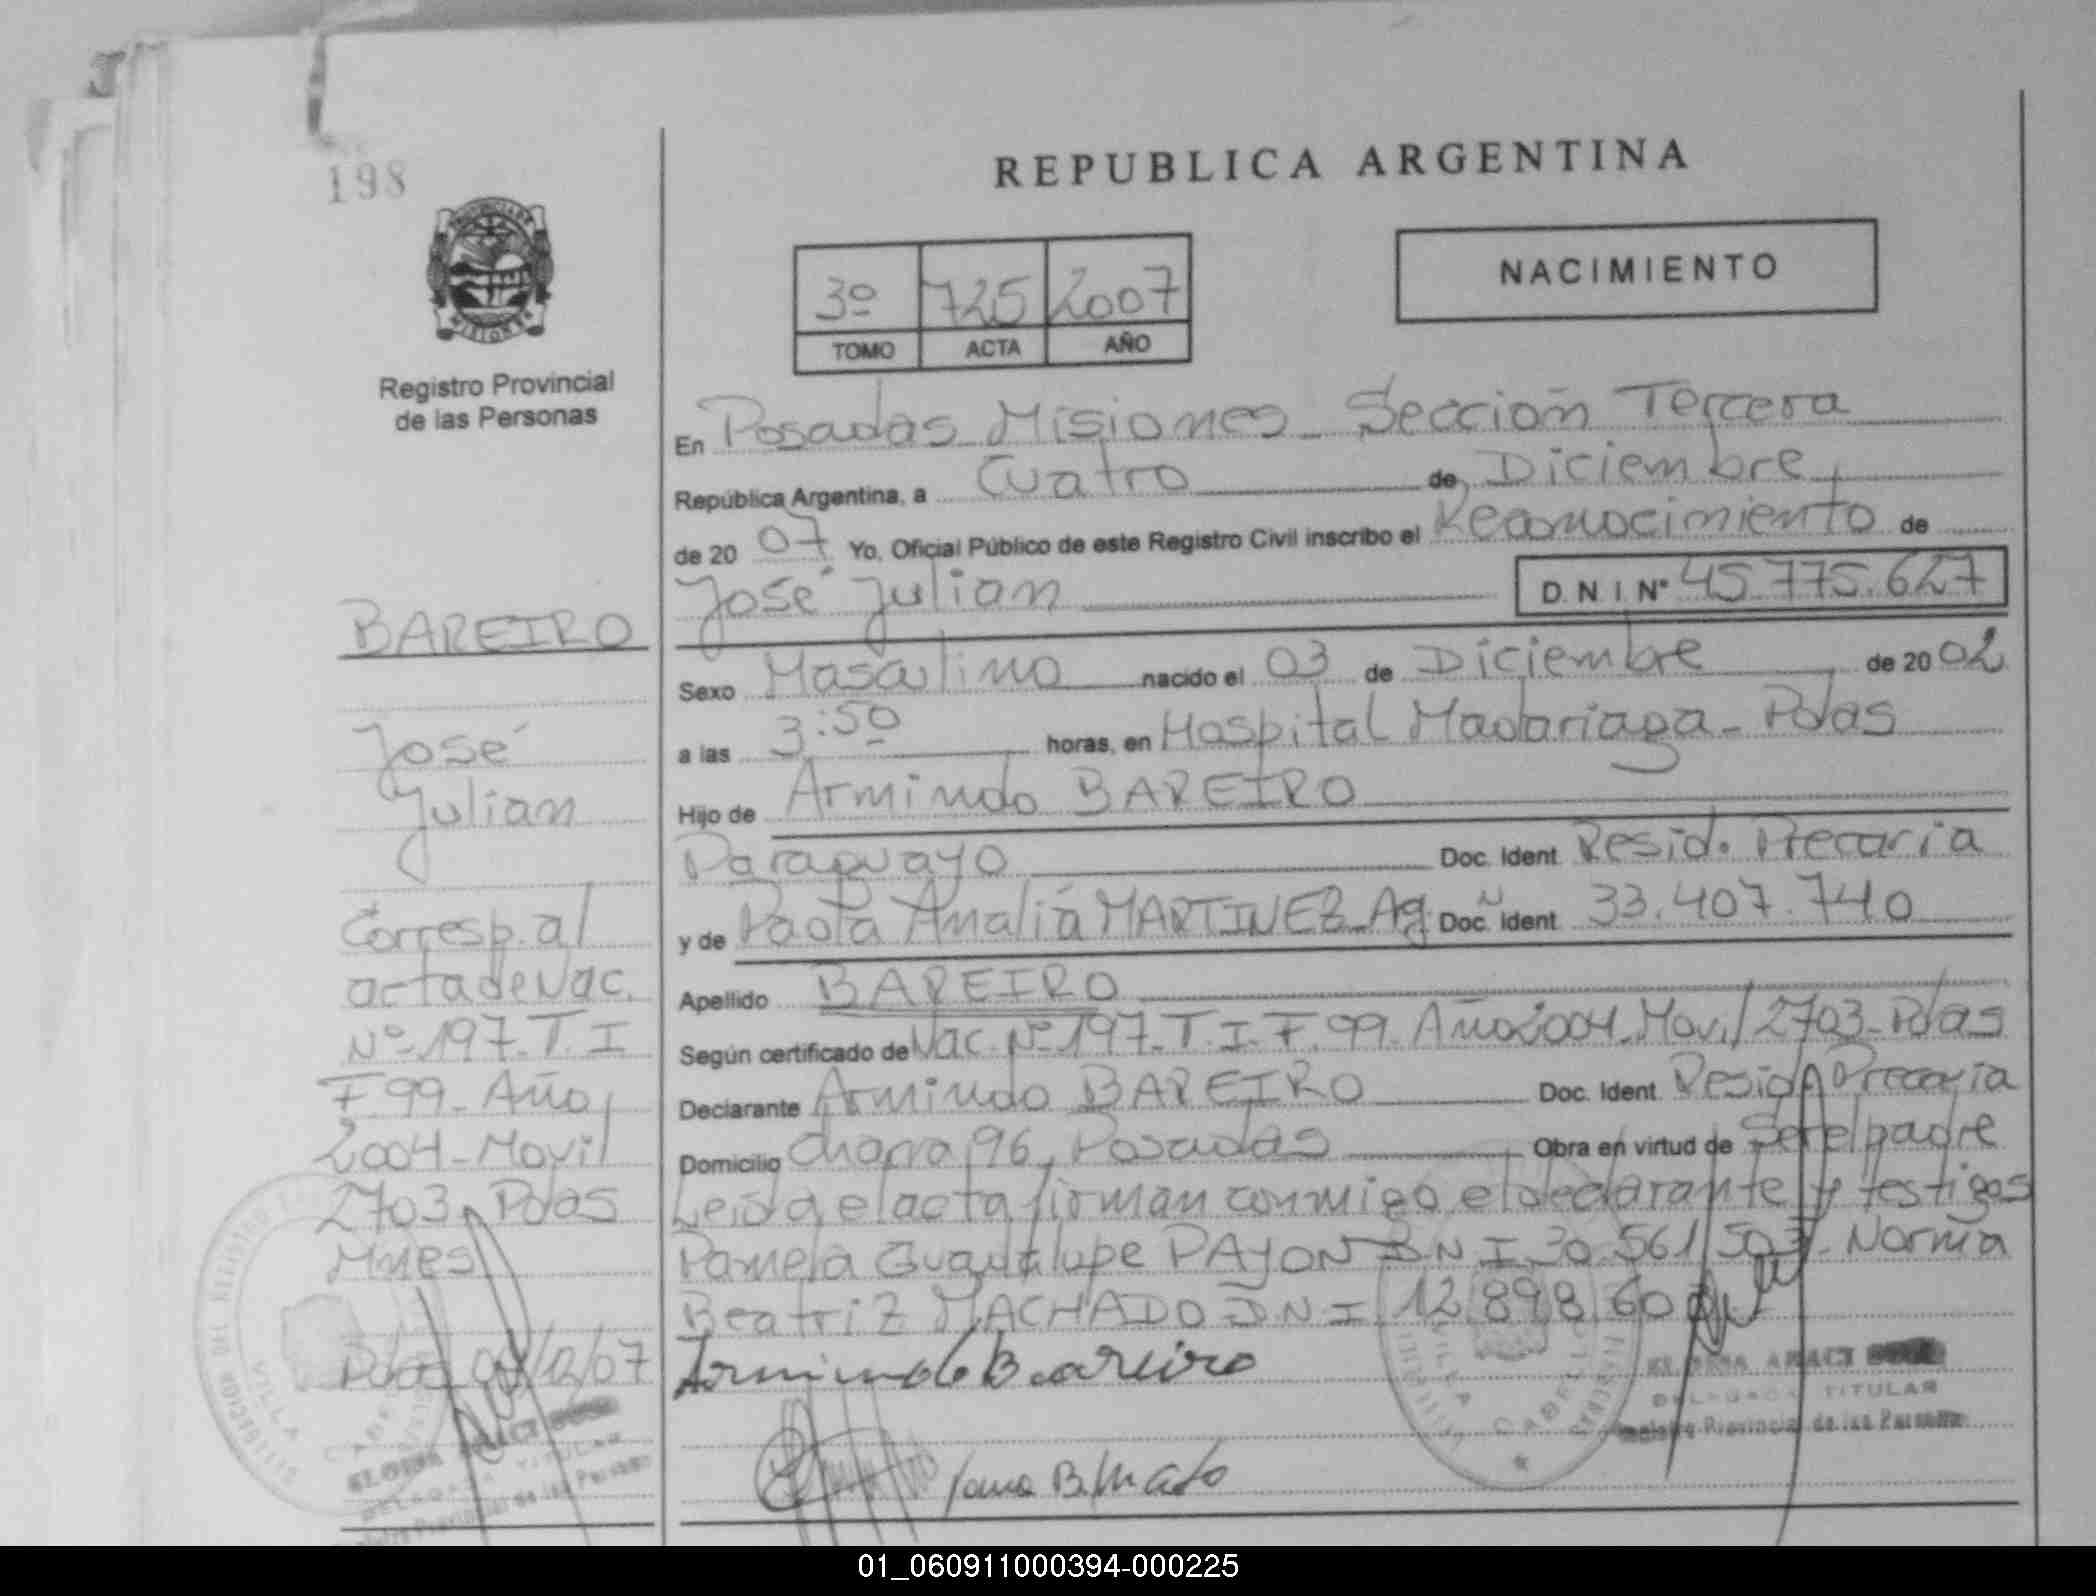 198
REPUBLICA ARGENTINA
PROVINCIA DE
MISIONES
Registro Provincial
de las Personas
3º 725 2007
TOMO ACTA AÑO
NACIMIENTO
En Posadas Misiones Sección Tercera
República Argentina, a Cuatro de Diciembre
de 20 07 Yo, Oficial Público de este Registro Civil inscribo el Reconocimiento de
José Julian D.N.I. Nº 45.775.627
Sexo Masculino nacido el 03 de Diciembre de 20 02
a las 3:50 horas, en Hospital Madariaga - Pdas
Hijo de Armindo BAREIRO
Paraguayo Doc. Ident. Resid. Precaria
y de Paola Analia MARTINEZ Ag. Doc. Ident. 33.407.740
Apellido BAREIRO
Según certificado de Nac. Nº 197 - T. I - F. 99 - Año 2004 - Movil 2703 - Pdas
Declarante Armindo BAREIRO Doc. Ident. Resid. Precaria
Domicilio Chacra 96, Posadas Obra en virtud de Ser el padre
Leida el acta firman conmigo el declarante y testigos
Pamela Guadalupe PAYON D N I 30.561.503 - Norma
Beatriz MACHADO D N I 12.898.60
Armindo Bareiro
BAREIRO
José
Julian
Corresp. al
acta de Nac.
Nº 197 - T. I
F. 99 - Año
2004 - Movil
2703 - Pdas
Mnes
Pdas 04/12/07
VILLA CABELLO
DELEGADA TITULAR
Registro Provincial de las Personas
VILLA CABELLO
MISIONES
ARACI
DELEGADA TITULAR
Registro Provincial de las Personas
01_060911000394-000225